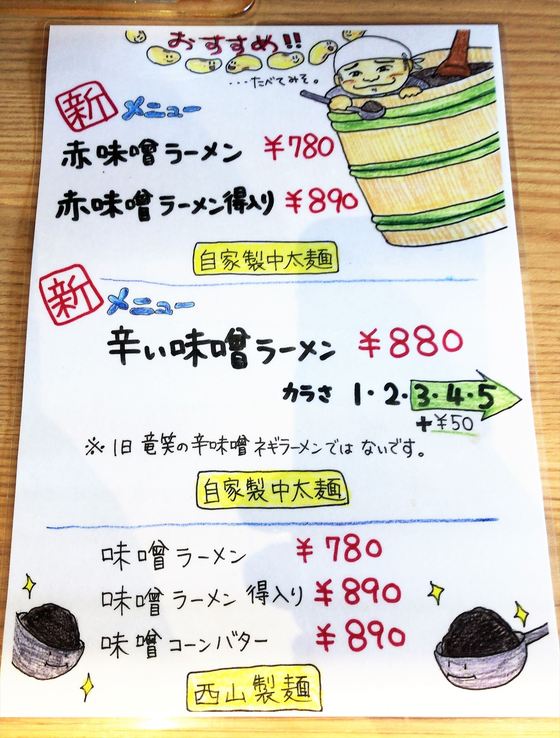 おすすめ!!
…たべてみそ。
新 メニュー
赤味噌ラーメン ¥780
赤味噌ラーメン得入り ¥890
自家製中太麺
新 メニュー
辛い味噌ラーメン ¥880
カラさ 1・2・3・4・5
+¥50
※1日 竜笑の辛味噌ネギラーメンでは ないです。
自家製中太麺
味噌ラーメン ¥780
味噌ラーメン 得入り ¥890
味噌コーンバター ¥890
西山製麺